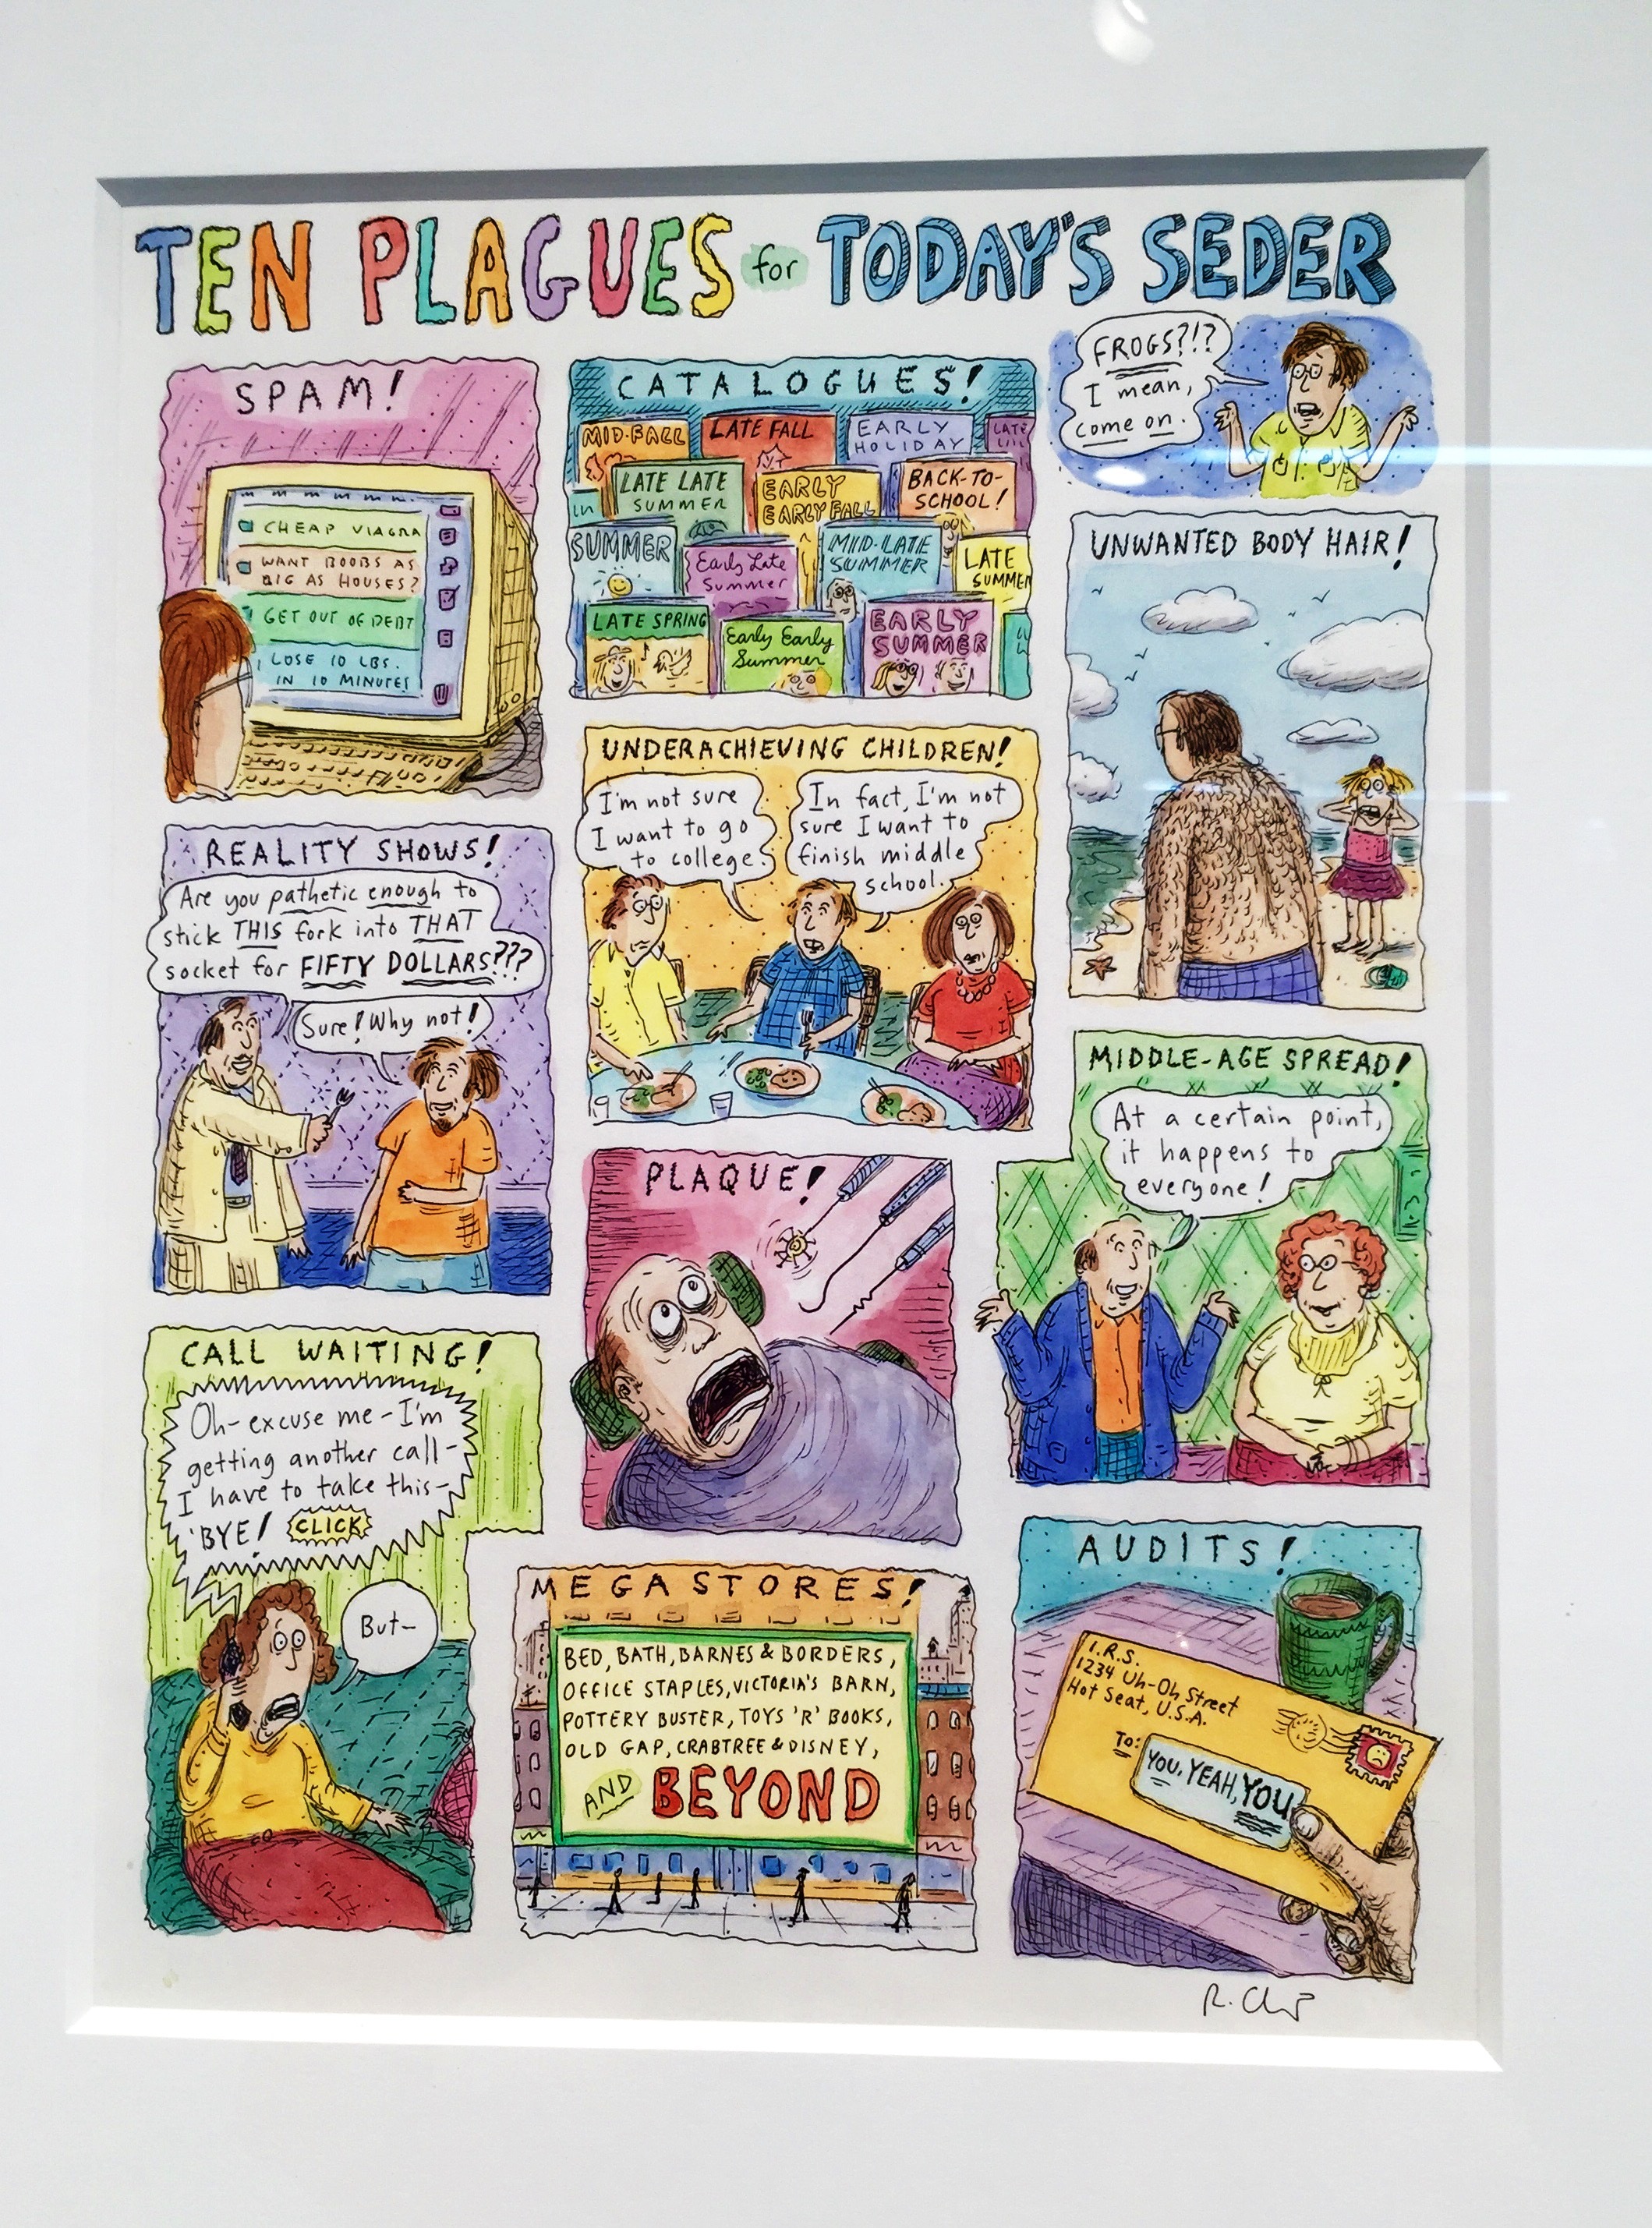 TEN PLAGUES for TODAY'S SEDER
FROGS?!?
I mean,
come on.
SPAM!
CHEAP VIAGRA
WANT BOOBS AS
BIG AS HOUSES?
GET OUT OF DEBT
LOSE 10 LBS.
IN 10 MINUTES
CATALOGUES!
MID-FALL
LATE FALL
EARLY
HOLIDAY
LATE
LATE LATE
SUMMER
EARLY
EARLY FALL
BACK-TO-
SCHOOL!
SUMMER
Early Late
Summer
MID-LATE
SUMMER
LATE
SUMMER
LATE SPRING
Early Early
Summer
EARLY
SUMMER
UNWANTED BODY HAIR!
UNDERACHIEVING CHILDREN!
I'm not sure
I want to go
to college.
In fact, I'm not
sure I want to
finish middle
school.
REALITY SHOWS!
Are you pathetic enough to
stick THIS fork into THAT
socket for FIFTY DOLLARS???
Sure! Why not!
PLAQUE!
MIDDLE-AGE SPREAD!
At a certain point,
it happens to
everyone!
CALL WAITING!
Oh-excuse me-I'm
getting another call-
I have to take this-
'BYE! CLICK
But-
MEGASTORES!
BED, BATH, BARNES & BORDERS,
OFFICE STAPLES, VICTORIA'S BARN,
POTTERY BUSTER, TOYS 'R' BOOKS,
OLD GAP, CRABTREE & DISNEY,
AND BEYOND
AUDITS!
I.R.S.
1234 Uh-Oh Street
Hot Seat, U.S.A.
TO:
YOU. YEAH, YOU